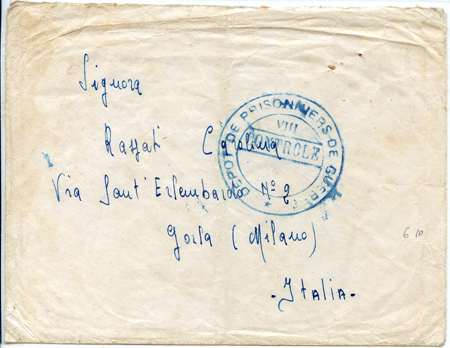 Signora
Rassati Carolina
Via Sant' Erlembardo Nº 2
Gorla (Milano)
- Italia -
DEPOT DE PRISONNIERS DE GUERRE
VIII
CONTROLE
6 10